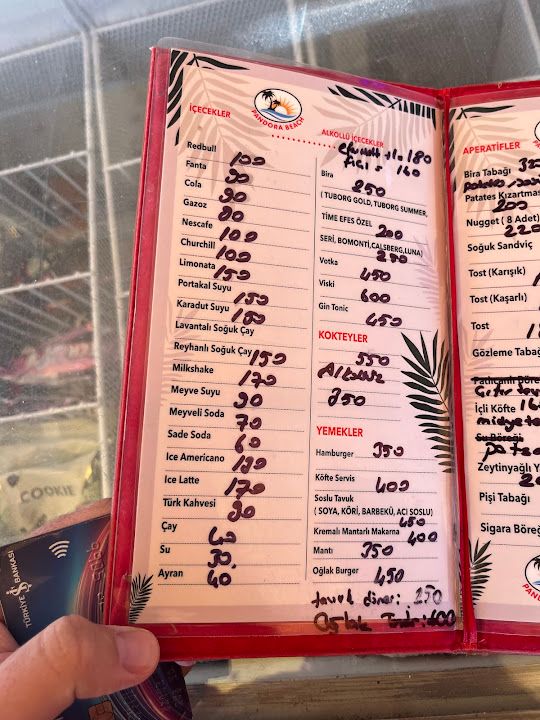 İÇECEKLER
PANDORA BEACH
Redbull 100
Fanta 90
Cola 90
Gazoz 80
Nescafe 100
Churchill 100
Limonata 150
Portakal Suyu 150
Karadut Suyu 150
Lavantalı Soğuk Çay
Reyhanlı Soğuk Çay 150
Milkshake 170
Meyve Suyu 90
Meyveli Soda 70
Sade Soda 60
Ice Americano
Ice Latte 170
Türk Kahvesi 90
Çay 40
Su 30.
Ayran 40
ALKOLLÜ İÇECEKLER
180
Fıçı =
Bira 250
( TUBORG GOLD, TUBORG SUMMER,
TİME EFES ÖZEL 200
SERİ, BOMONTİ,CALSBERG,LUNA) 250
Votka 450
Viski 600
Gin Tonic 450
KOKTEYLER
550
350
YEMEKLER
Hamburger 350
Köfte Servis 400
Soslu Tavuk
( SOYA, KÖRİ, BARBEKÜ, ACI SOSLU)
450
Kremalı Mantarlı Makarna 400
Mantı 350
Oğlak Burger 450
tavuk döner: 250
600
APERATİFLER
Bira Tabağı
Patates Kızartması
200
Nugget ( 8 Adet)
220
Soğuk Sandviç
Tost (Karışık)
Tost (Kaşarlı)
Tost
Gözleme Tabağ
İçli Köfte
midye
Su Böreği
Zeytinyağlı Y
Pişi Tabağı
Sigara Böreğ
COOKIE
TÜRKİYE İŞ BANKASI